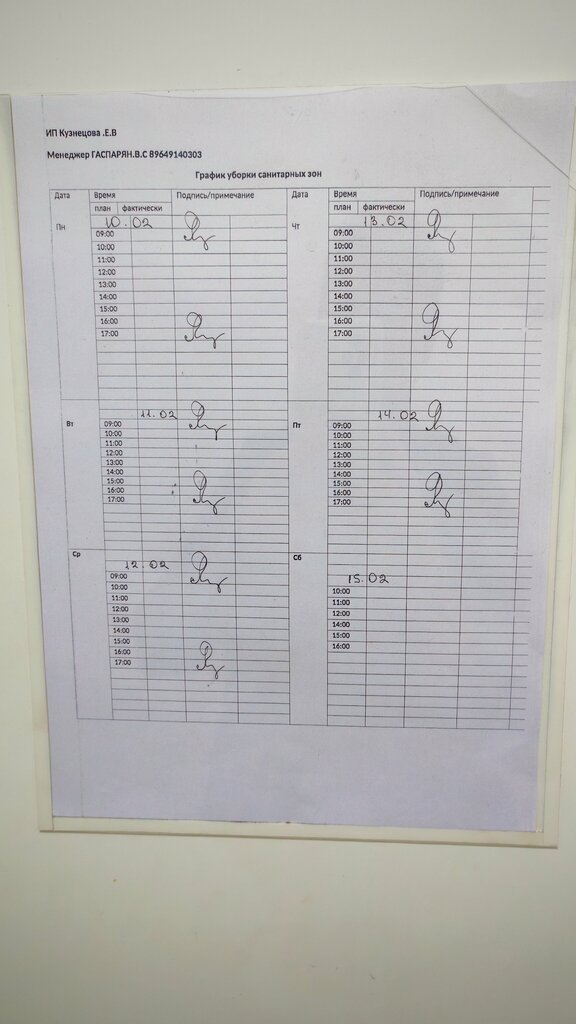 ИП Кузнецова .Е.В
Менеджер ГАСПАРЯН.В.С 89649140303
График уборки санитарных зон
Дата Время Подпись/примечание Дата Время Подпись/примечание
план фактически план фактически
Пн 10.02
09:00
10:00
11:00
12:00
13:00
14:00
15:00
16:00
17:00
Чт 13.02
09:00
10:00
11:00
12:00
13:00
14:00
15:00
16:00
17:00
Вт 11.02
09:00
10:00
11:00
12:00
13:00
14:00
15:00
16:00
17:00
Пт 14.02
09:00
10:00
11:00
12:00
13:00
14:00
15:00
16:00
17:00
Ср 12.02
09:00
10:00
11:00
12:00
13:00
14:00
15:00
16:00
17:00
Сб 15.02
10:00
11:00
12:00
14:00
15:00
16:00